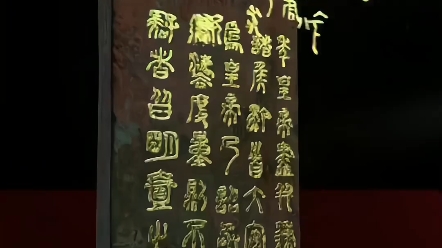 年皇帝盡并兼
諸侯黔首大安
為皇帝乃詔丞
綰灋度量則不
疑者皆明壹之